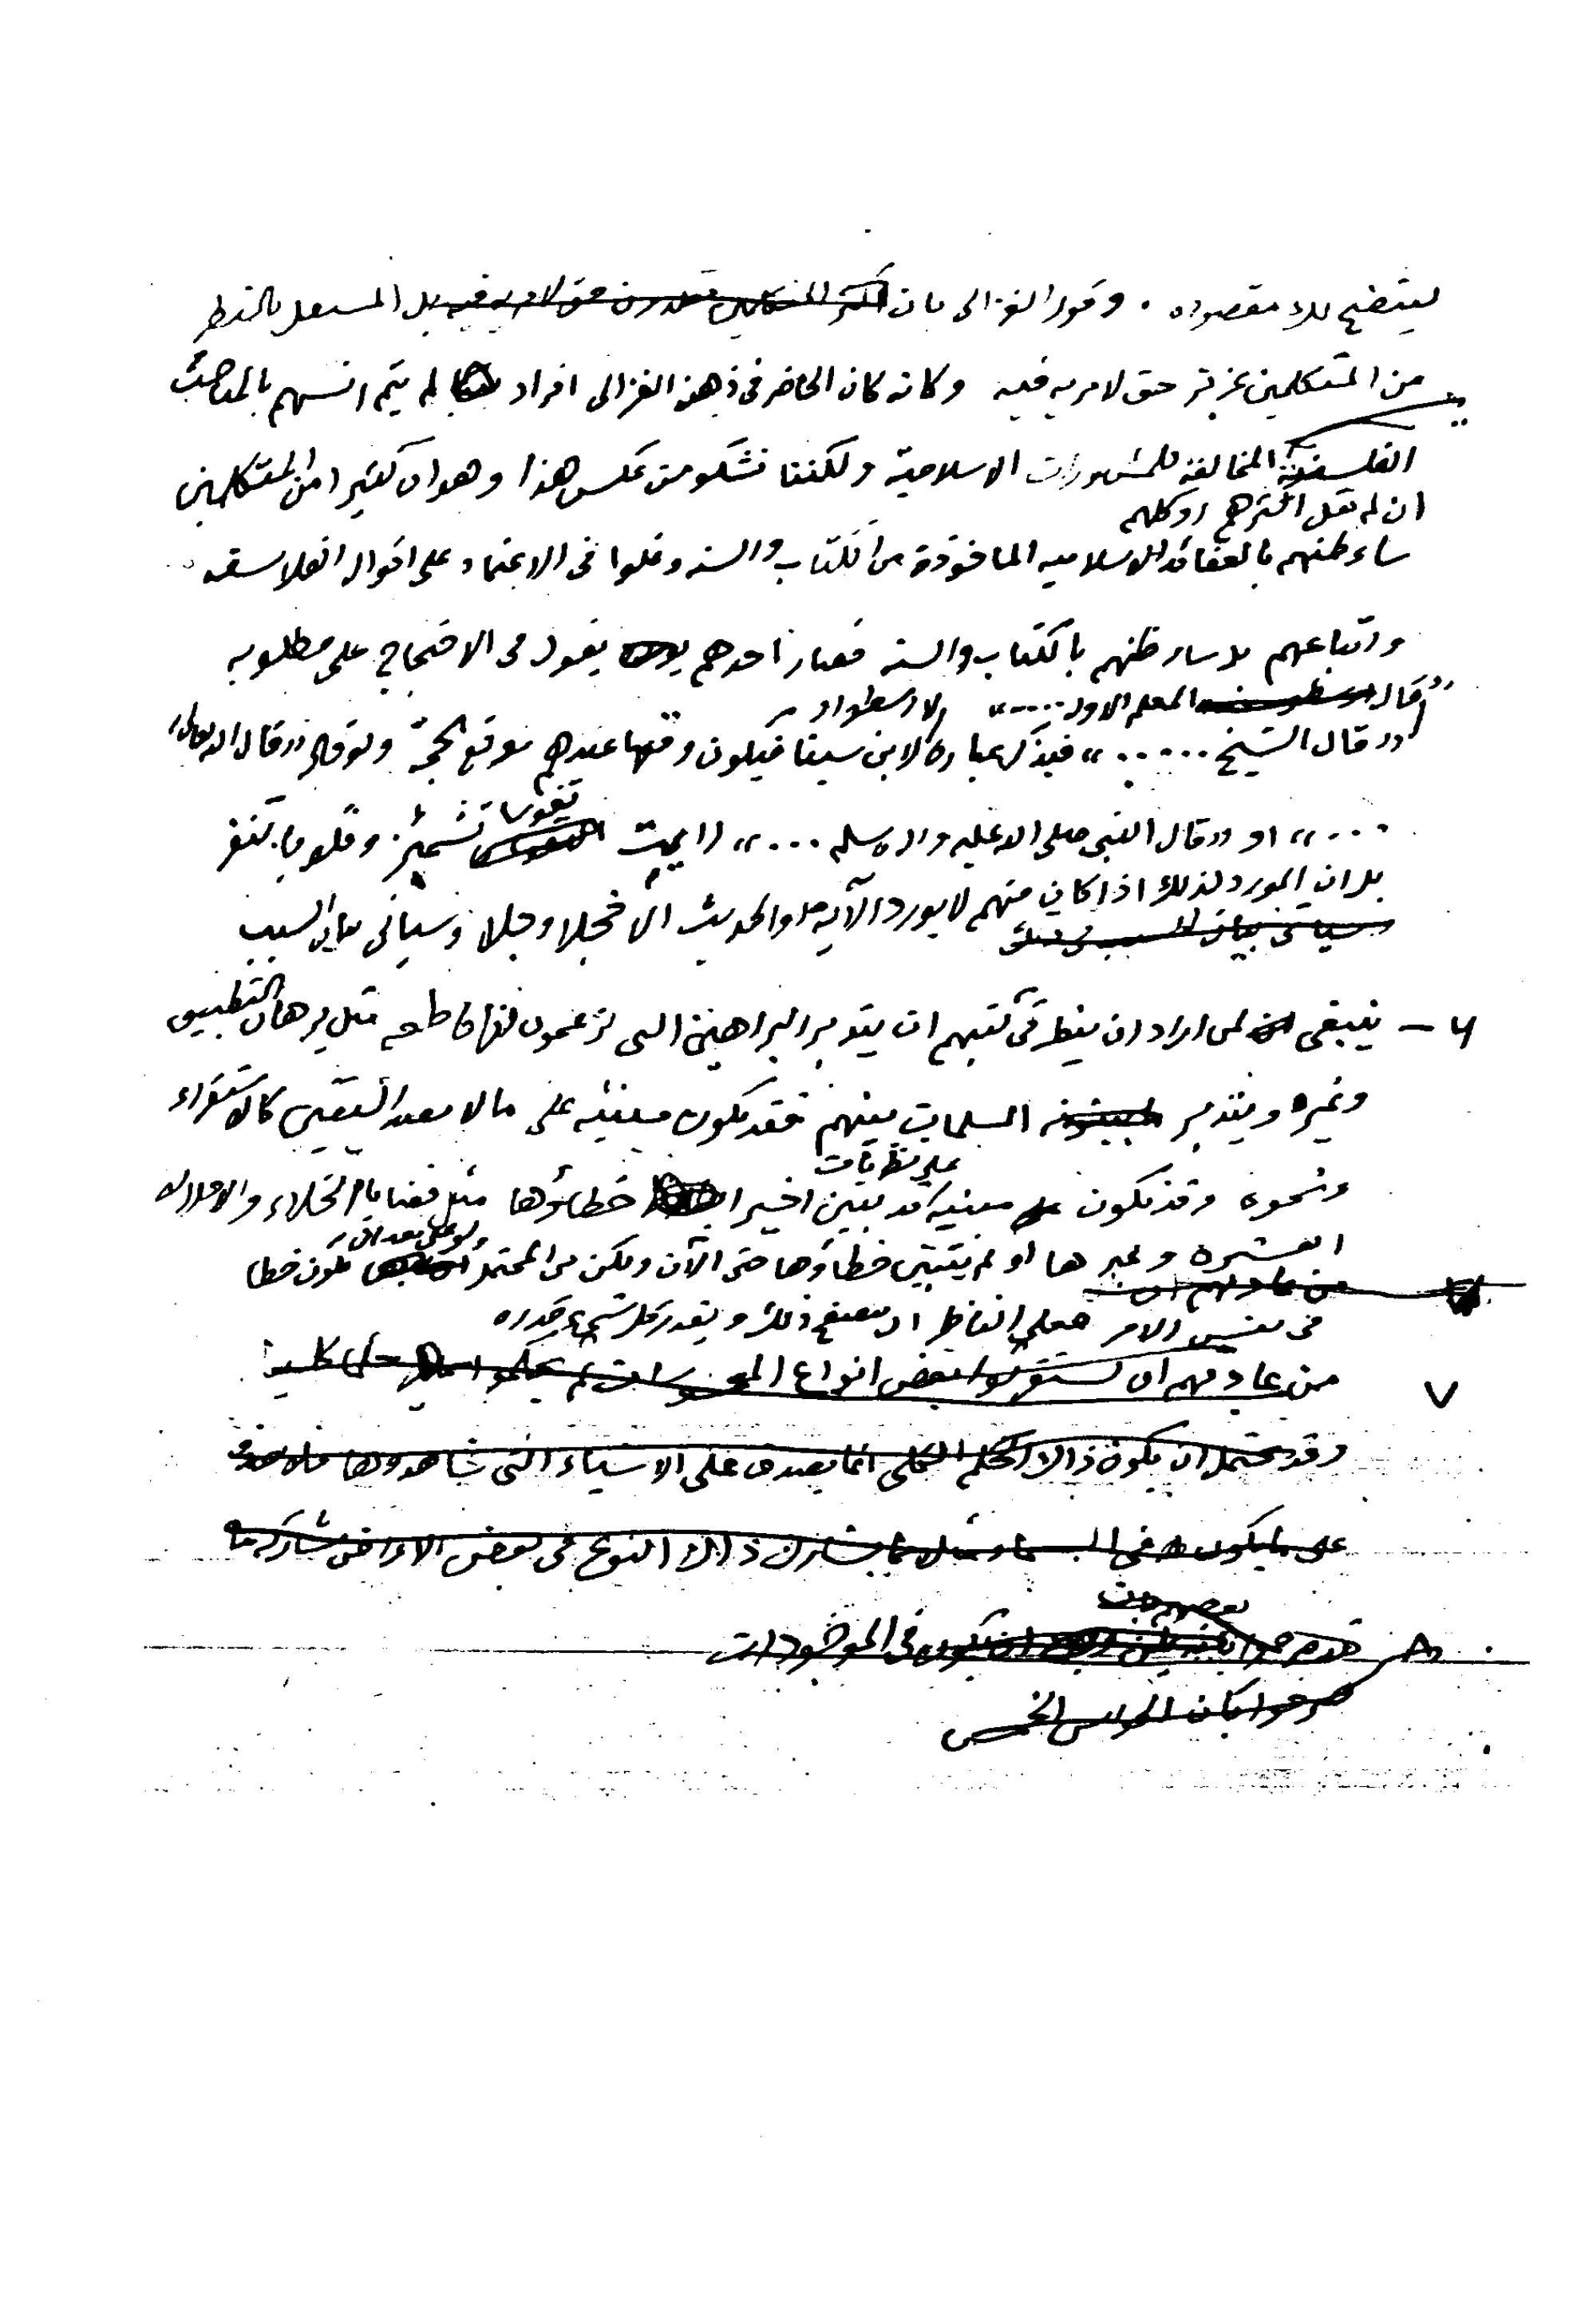 ليتضح لك مقصوده . وقول الغزالى بان اكثر المتكلمين مقلدون حق لا مريه فيه بل المستعمل بالنظر
من المتكلمين عزيز حق لا مريه فيه وكانه كان الحاضر فى ذهن الغزالى افراد لم يتم انسهم بالمذاهب
الفلسفية المخالفة للمشهورات الاسلامية ولكننا نشكو من عكس هذا وهو ان كثيرا من المتكلمين
ان لم نقل اكثرهم او كلهم
ساء ظنهم بالعقائد الاسلاميه الماخوذة من الكتاب والسنه وغلوا فى الاعتماد على اقوال الفلاسفه
واتباعهم بل ساء ظنهم بالكتاب والسنه فصار احدهم يقول فى الاحتجاج على مطلوبه
"قال المعلم الاول ....." لارسطو او
"وقال الشيخ ......" فيذكر عبارة لابن سينا فيكون وقعها عندهم موقع الحجة ولو قال "قال الله تعالى
...." او "قال النبى صلى الله عليه واله وسلم ..." رايت نفوسا تشمئز وقلوبا تنفر
بل ان المورد لذلك اذا كان منهم لا يورد الآيه والحديث الا خجلا وجلا وسياتى بيان السبب
سياتى بيان السبب فى ذلك
٦ - ينبغى لمن اراد ان ينظر فى كتبهم ان يتدبر البراهين التى يزعمون انها قاطعه مثل برهان التطبيق
وغيره ويتدبر المسلمات بينهم فقد يكون مبنيه على ما لا يفيد اليقين كالاستقراء
ونحوه وقد يكون مبنيه على نظريات قد تبين اخيرا خطاؤها مثل قضايا الخلاء والافلاك
العشره وغيرها او لم يتبين خطاؤها حتى الآن ولكن من المحتمل ولو على بعد ان يكون خطا
من عادتهم ان
فى نفس الامر فعلى الناظر ان يتصفح ذلك ويقدر كل شىء قدره
٧ من عادتهم ان يستقرئوا بعض انواع
وقد يحتمل ان يكون ذلك الحكم الكلى انما يصدق على الاشياء التى شاهدوها
على ما يكون فى السماء مثلا مما يشارك ذلك النوع فى بعض الاعراض
فى الموجودات
صرحوا بان الحواس الخمس